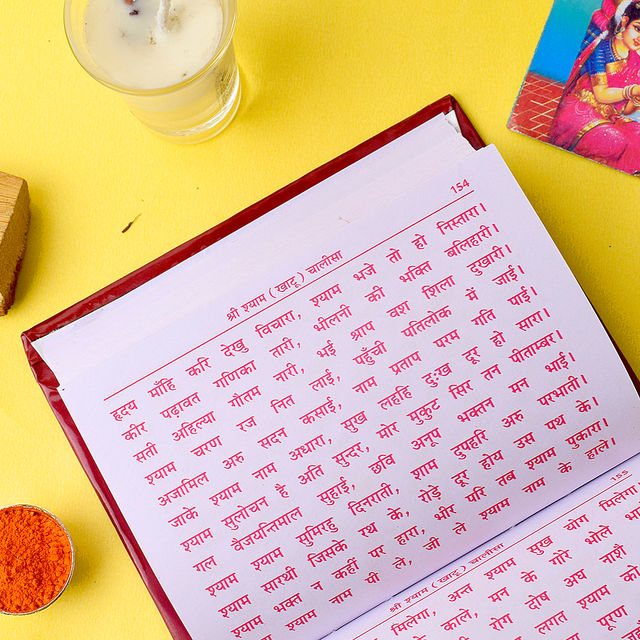 154
श्री श्याम ( खाटू ) चालीसा
हृदय माँहि करि देखु विचारा, श्याम भजे तो हो निस्तारा।
कीर पढ़ावत गणिका तारी, भीलनी की भक्ति बलिहारी।
सती अहिल्या गौतम नारी, भई श्राप वश शिला दुखारी।
श्याम चरण रज नित लाई, पहुँची पतिलोक में जाई।
अजामिल अरु सदन कसाई, नाम प्रताप परम गति पाई।
जाके श्याम नाम अधारा, सुख लहहि दुःख दूर हो सारा।
श्याम सुलोचन है अति सुन्दर, मोर मुकुट सिर तन पीताम्बर।
गल वैजयन्तिमाल सुहाई, छवि अनूप भक्तन मन भाई।
श्याम श्याम सुमिरहु दिनराती, शाम दुपहरि अरु परभाती।
श्याम सारथी जिसके रथ के, रोड़े दूर होय उस पथ के।
श्याम भक्त न कहीं पर हारा, भीर परि तब श्याम पुकारा।
श्याम नाम पी ले, जी ले श्याम नाम के हाले।
155
श्री श्याम ( खाटू ) चालीसा
मिलेगा, अन्त श्याम सुख योग मिलेगा।
काले, मन के गोरे भोले
रोग दोष अघ नाशै
लगत श्याम को
पूरण